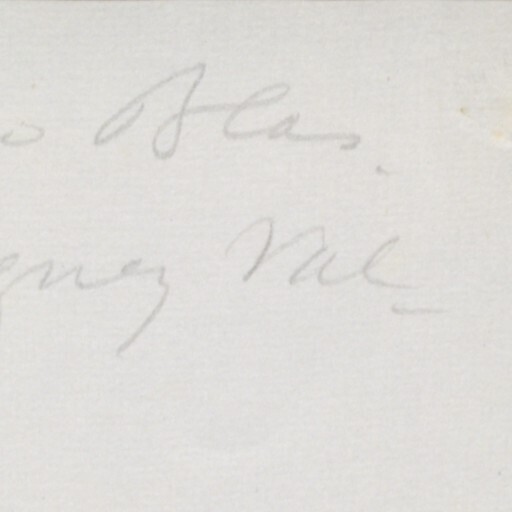 o Blas.
gney Val